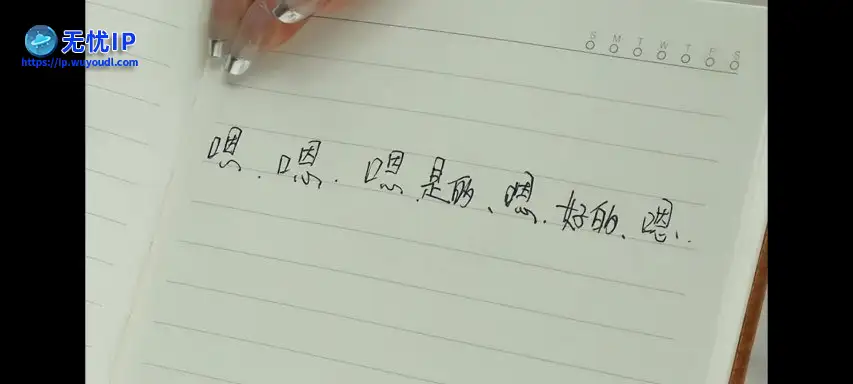 无忧IP
https://ip.wuyoudl.com
S M T W T F S
嗯.嗯.嗯.是的、嗯.好的、嗯..